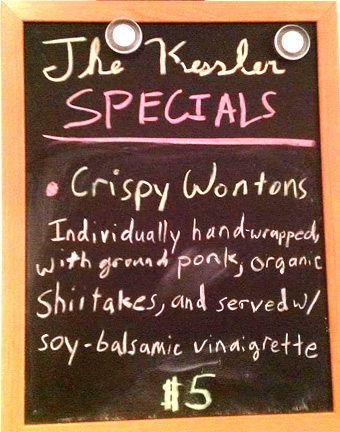 The Kessler
SPECIALS
• Crispy Wontons
Individually hand-wrapped,
with ground pork, organic
Shiitakes, and served w/
soy-balsamic vinaigrette
$5